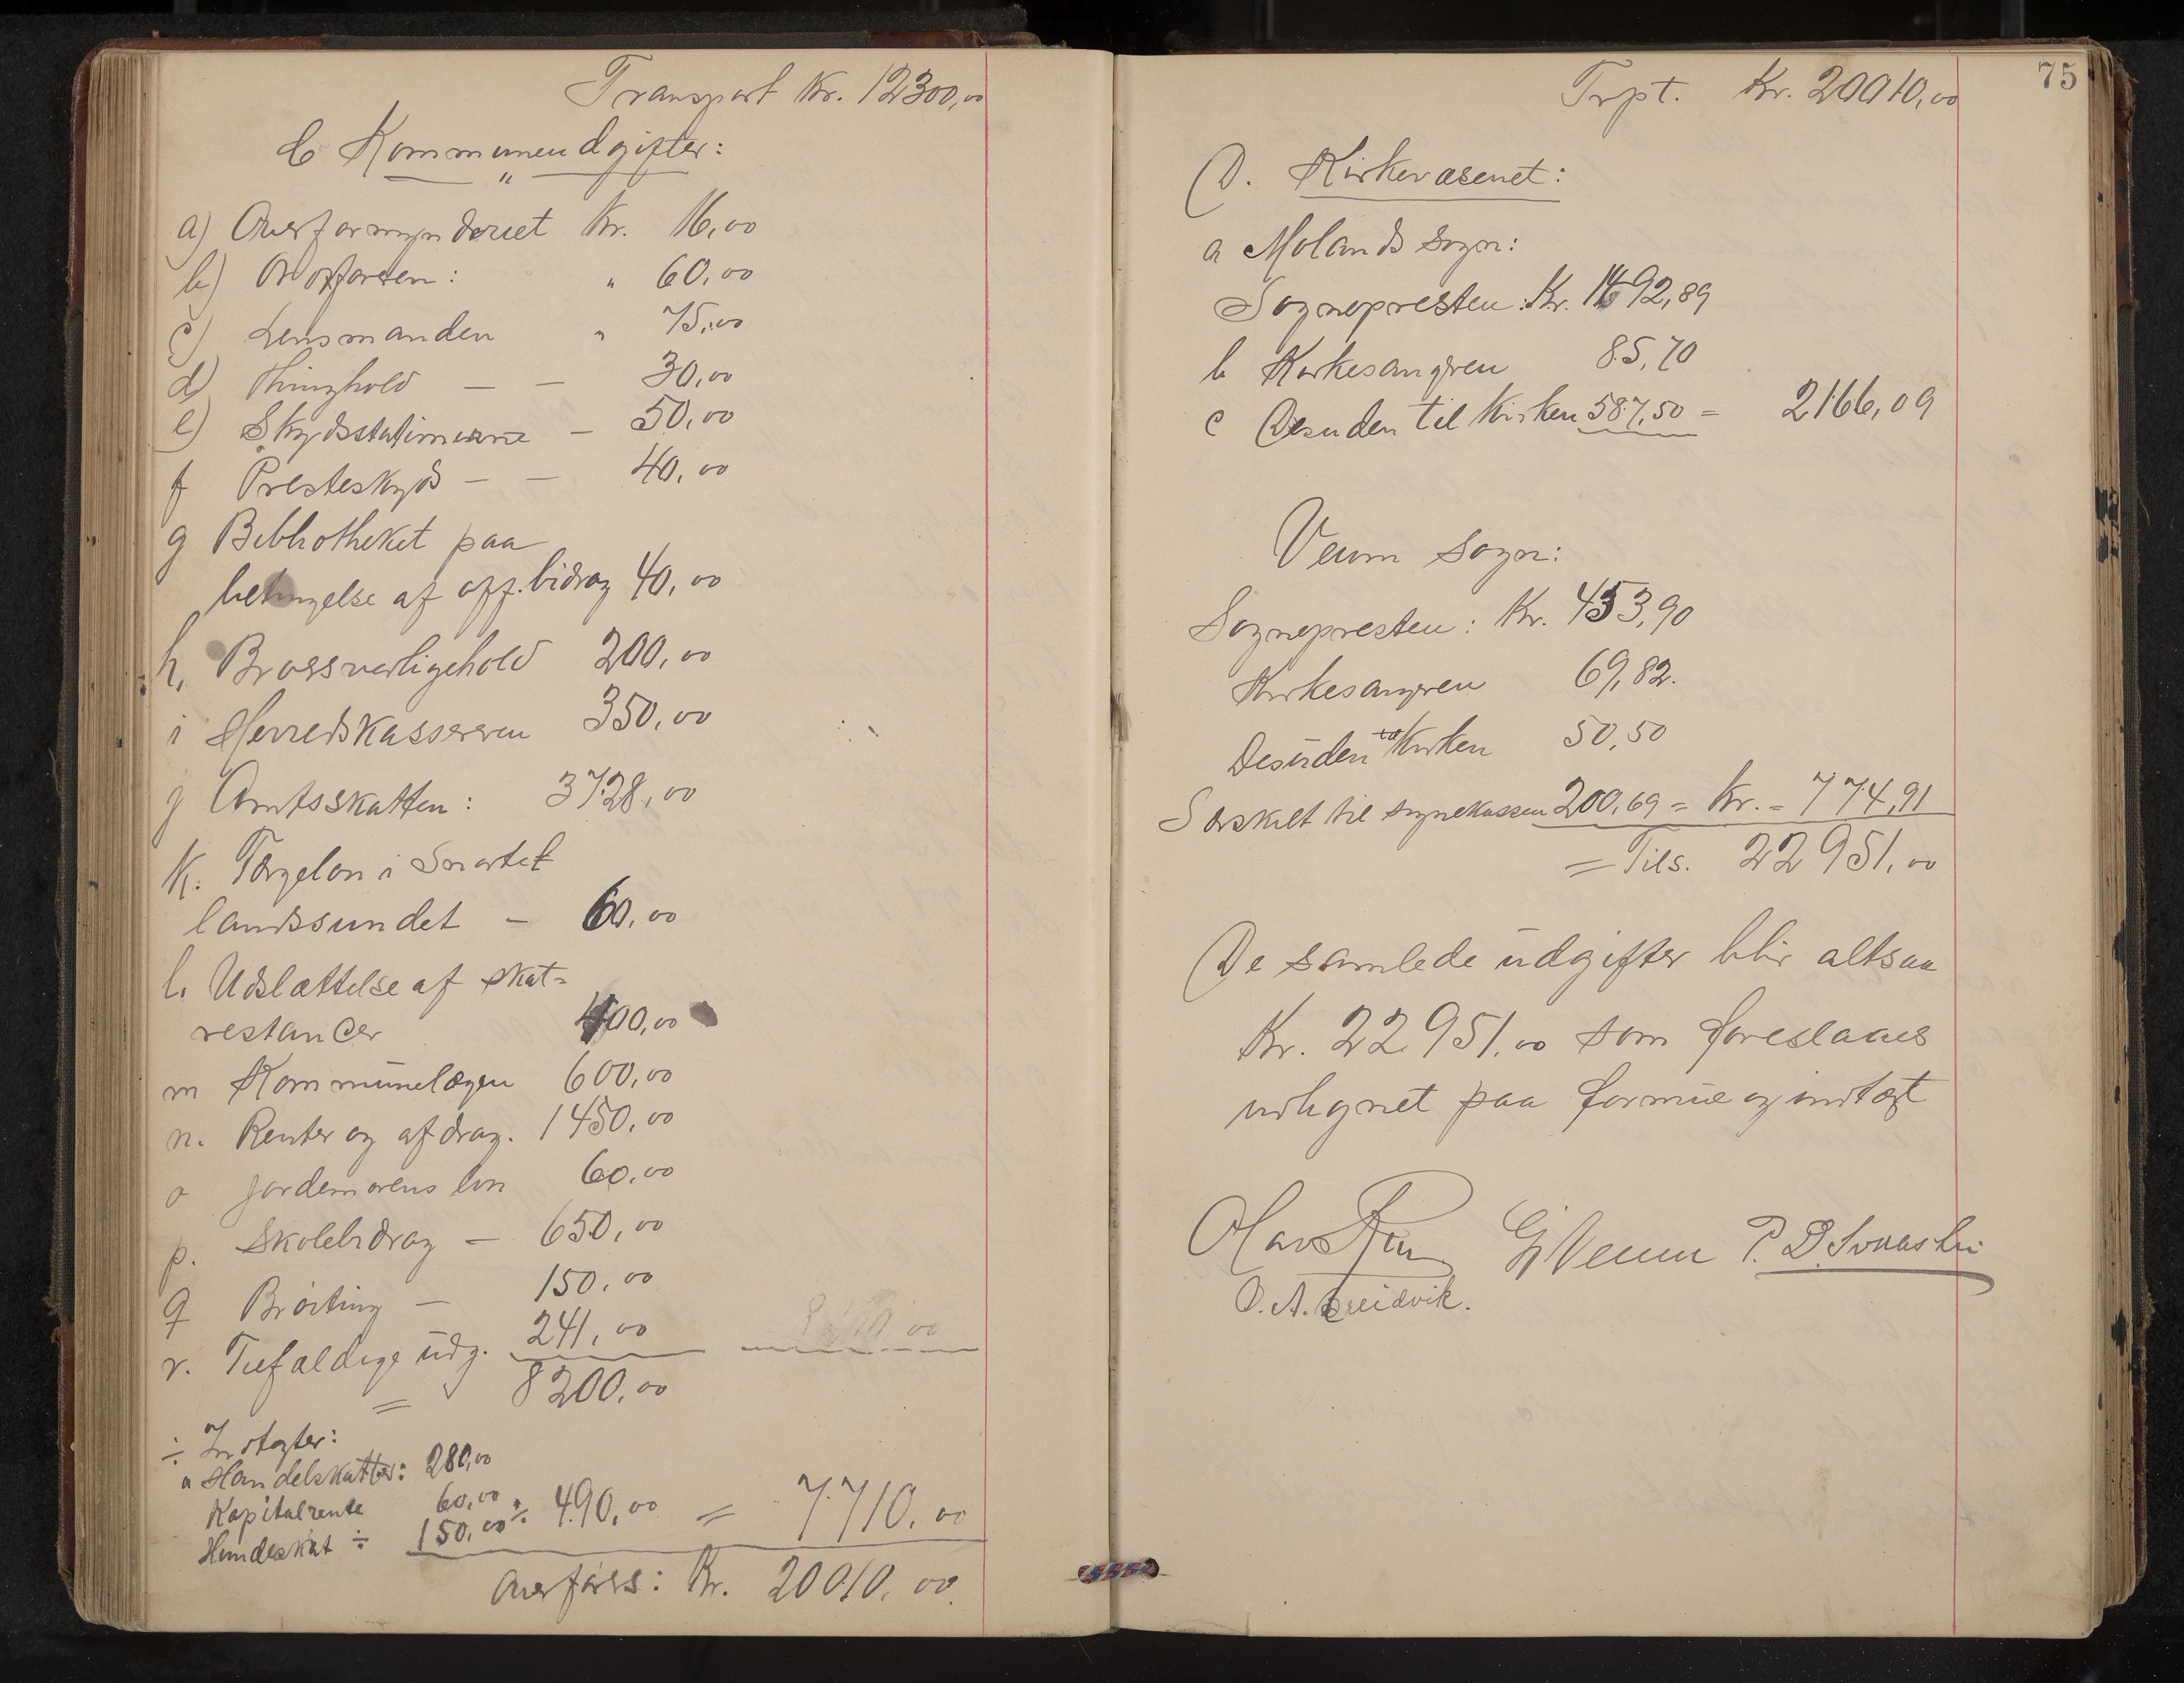 Transport Kr. 12300,00
C Kommuneudgifter:
"
a) Overformynderiet Kr. 16,00
b) Ordføreren: " 60,00
c) Lensmanden " 75,00
d) Thinghold — — 30,00
e) Skydsstationerne — 50,00
f Presteskyds — — 40,00
g Bibliotheket paa
betingelse af off. bidrag 40,00
h, Brossvedligehold 200,00
i Herredskassereren 350,00
j Amtsskatten: 3728,00
k. Færgeløn i Smørtek
landssundet — 60,00
l. Udslættelse af skat=
restancer 400,00
m Kommunelægen 600,00
n. Renter og afdrag. 1450,00
o Jordemorens løn 60,00
p. Skolebidrag — 650,00
q Brøiting — 150,00
r. Tilfældige udg. 241,00
= 8200,00
÷ Indtægter:
a Handelskatter: 280,00
Kapitalrente 60,00 ÷ 490,00 = 7710,00
Hundeskat ÷ 150,00
Overføres: Kr. 20010,00.
75
Trpt. Kr. 20010,00
D. Kirkevæsenet:
a Molands sogn:
Sognepresten: Kr. 1492,89
b Kirkesangeren 85,70
c Desuden til Kirken 587,50 = 2166,09
Veum sogn:
Sognepresten: Kr. 453,90
Kirkesangeren 69,82.
Desuden til Kirken 50,50
Særskilt til sognekassen 200,69 = Kr. = 774,91
= Tils. 22951,00
De samlede udgifter blir altsaa
Kr. 22951,00 som foreslaaes
udlignet paa formue og indtægt
Olav GVeum P. D.
O. A. Breidvik.